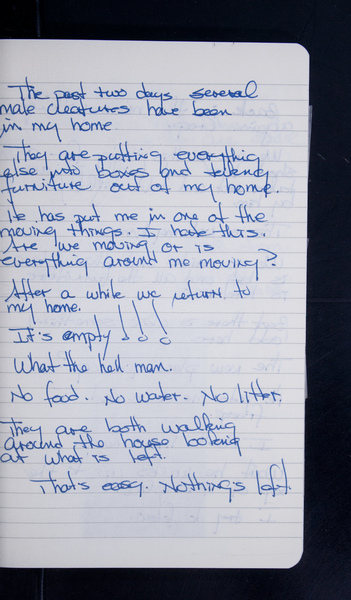 The past two days several
male creatures have been
in my home.
They are putting everything
else into boxes and taking
furniture out of my home.
He has put me in one of the
moving things. I hate this.
Are we moving or is
everything around me moving?
After a while we return to
my home.
It's empty!!!
What the hell man.
No food. No water. No litter.
They are both walking
around the house looking
at what is left.
That's easy. Nothing's left.